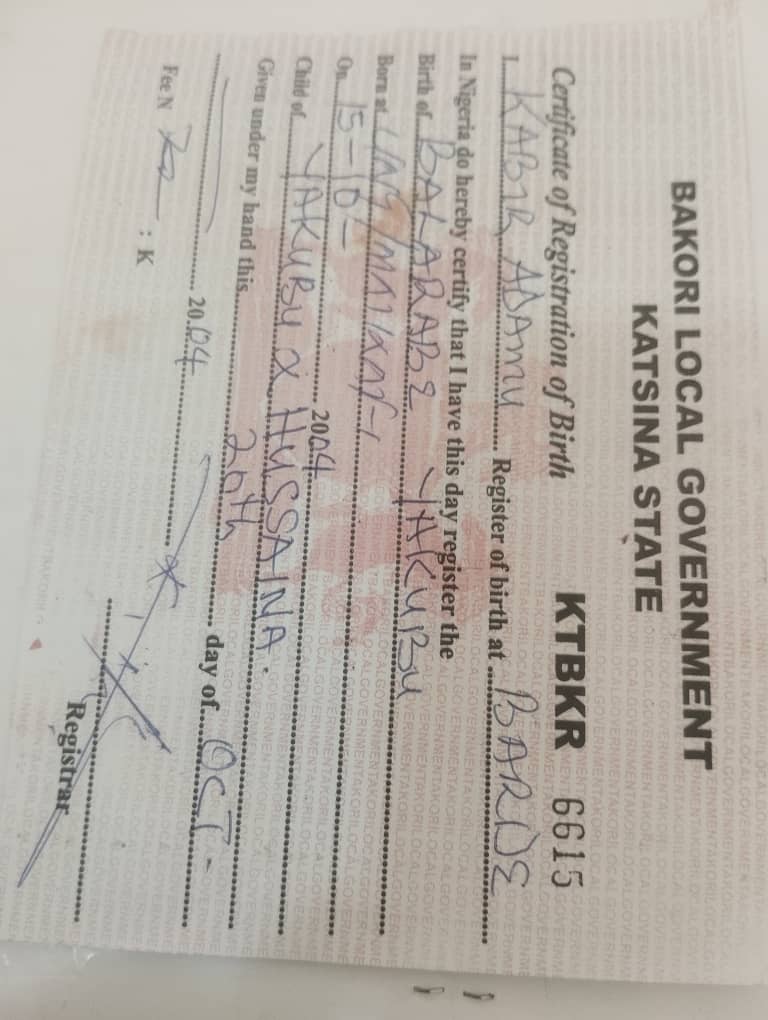 BAKORI LOCAL GOVERNMENT
KATSINA STATE
Certificate of Registration of Birth KTBKR 6615
I. KABIR ADAMU Register of birth at BARDE
In Nigeria do hereby certify that I have this day register the
Birth of BALARABE YAKUBU
Born at UNG/
On 15-10- 2004
Child of YAKUBU & HUSSAINA.
Given under my hand this 20th day of OCT-
2004
Fee N : K
Registrar